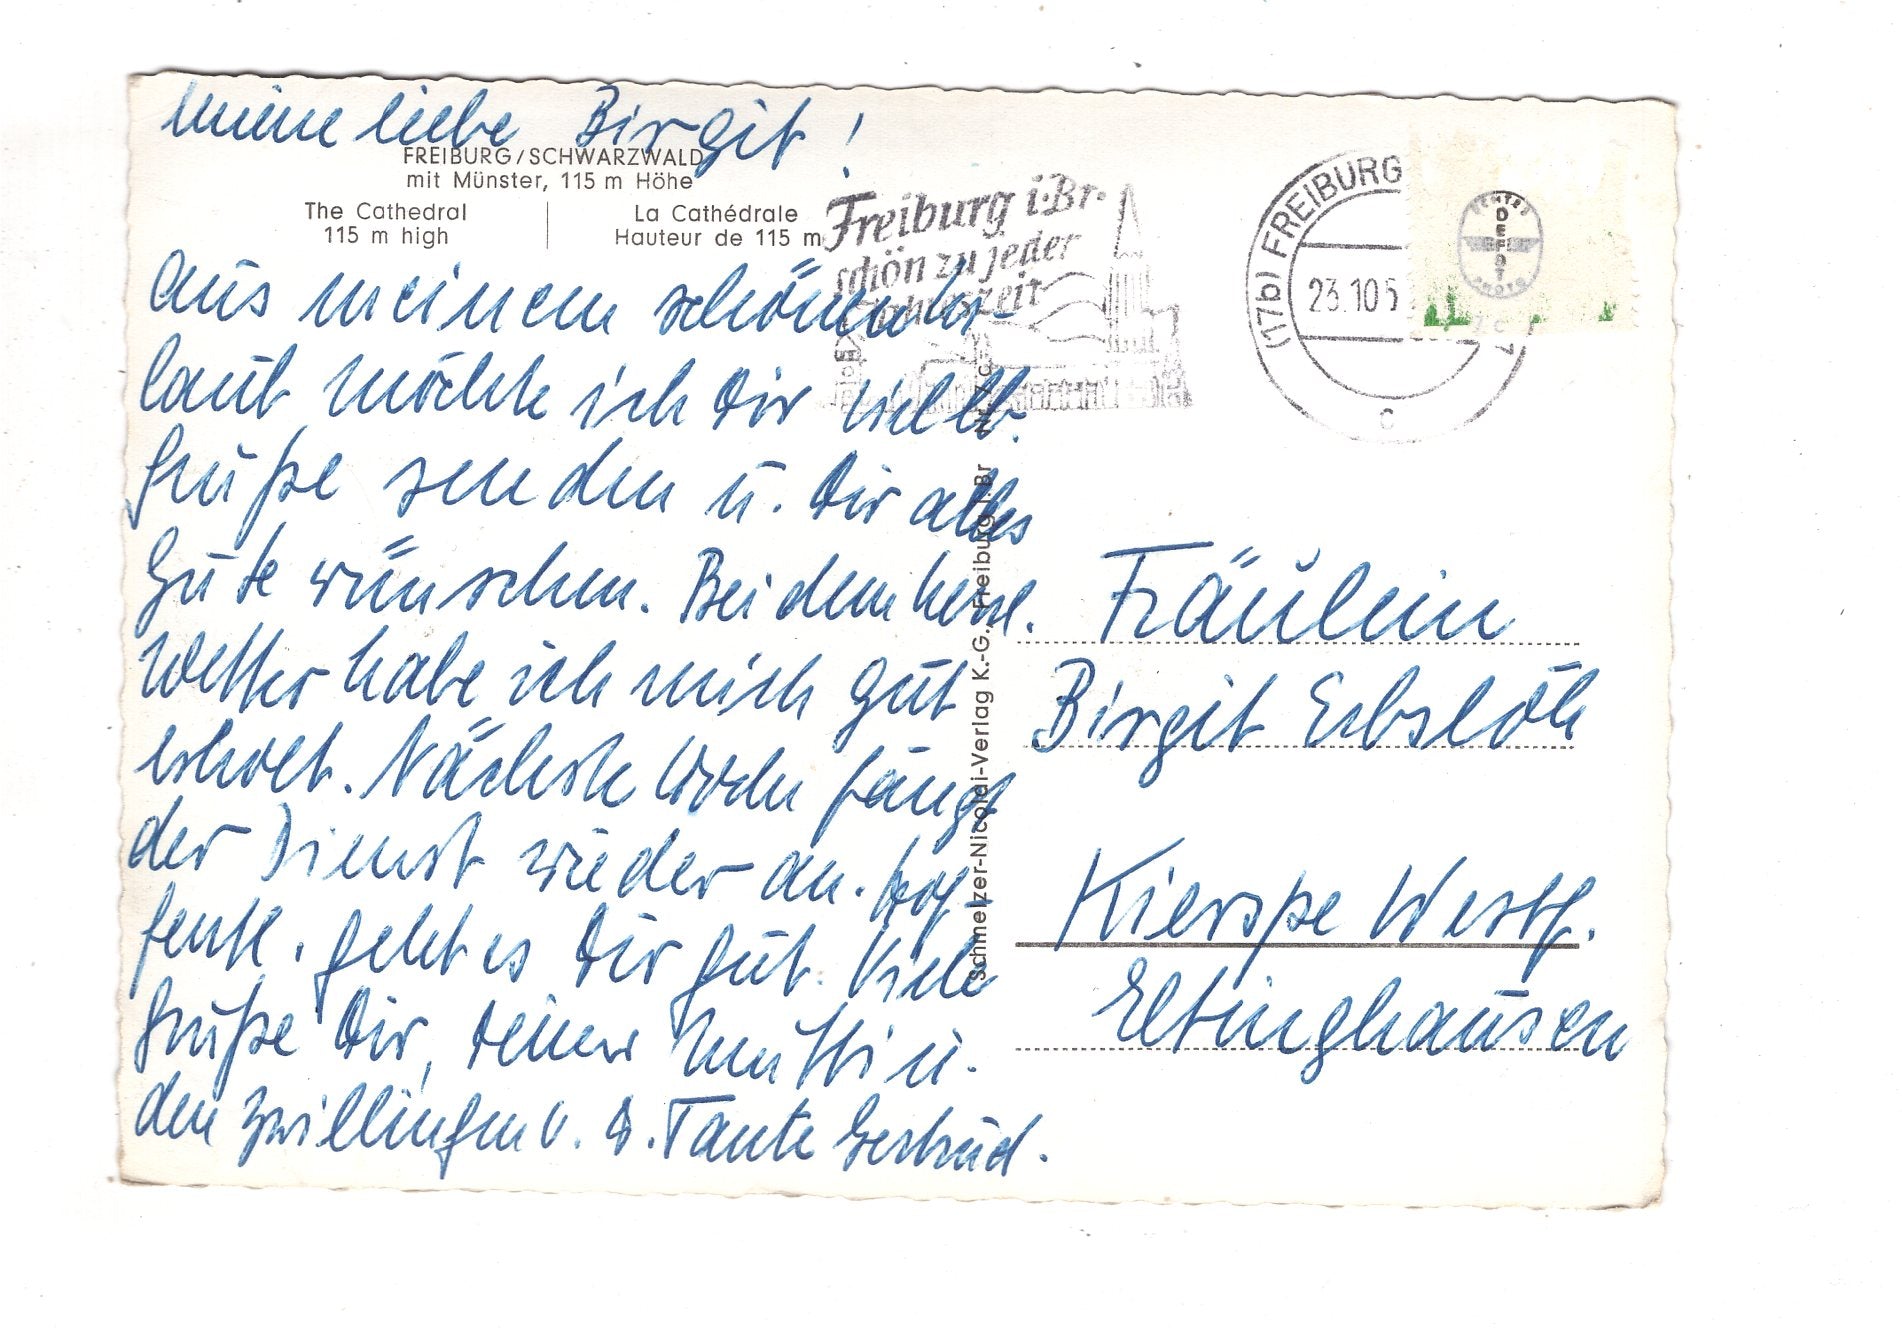 Meine liebe Birgit!
FREIBURG/SCHWARZWALD
mit Münster, 115 m Höhe
The Cathedral
115 m high
La Cathédrale
Hauteur de 115 m
Aus meinem schönen Ur-
laub möchte ich Dir
Grüße senden u. Dir alles
Gute wünschen. Bei dem herrl.
Wetter habe ich mich gut
erholt. Nächste Woche fängt
der Dienst wieder an. Hof-
fentl. geht es Dir gut. Viele
Grüße Dir, Deiner Mutti u.
den Zwillingen v. D. Tante Gertrud.
Schmelzer-Nicolai-Verlag K.-G., Freiburg i.Br
Freiburg i.Br.
schön zu jeder
Jahreszeit
(17b) FREIBURG
23.10.5
c
DEPOT
PHOTO
Fräulein
Birgit Erbslöh
Kierspe Westf.
Eltinghausen